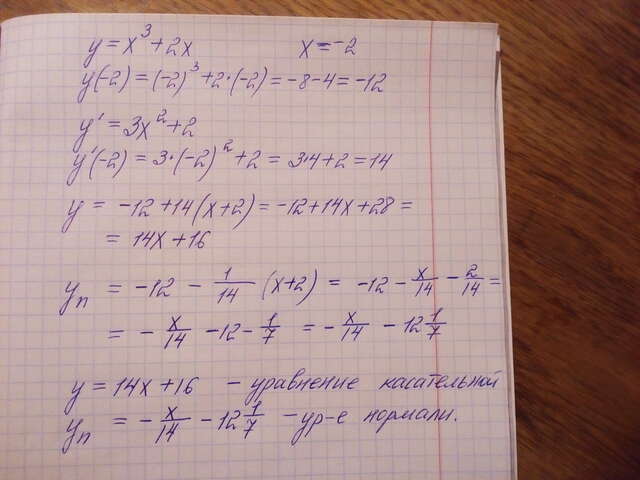 y = x³ + 2x x = -2
y(-2) = (-2)³ + 2·(-2) = -8-4 = -12
y' = 3x² + 2
y'(-2) = 3·(-2)² + 2 = 3·4+2 = 14
y = -12 + 14(x+2) = -12 + 14x + 28 =
= 14x + 16
yₙ = -12 - 1/14 (x+2) = -12 - x/14 - 2/14 =
= - x/14 - 12 - 1/7 = - x/14 - 12 1/7
y = 14x + 16 - уравнение касательной
yₙ = - x/14 - 12 1/7 - ур-е нормали.